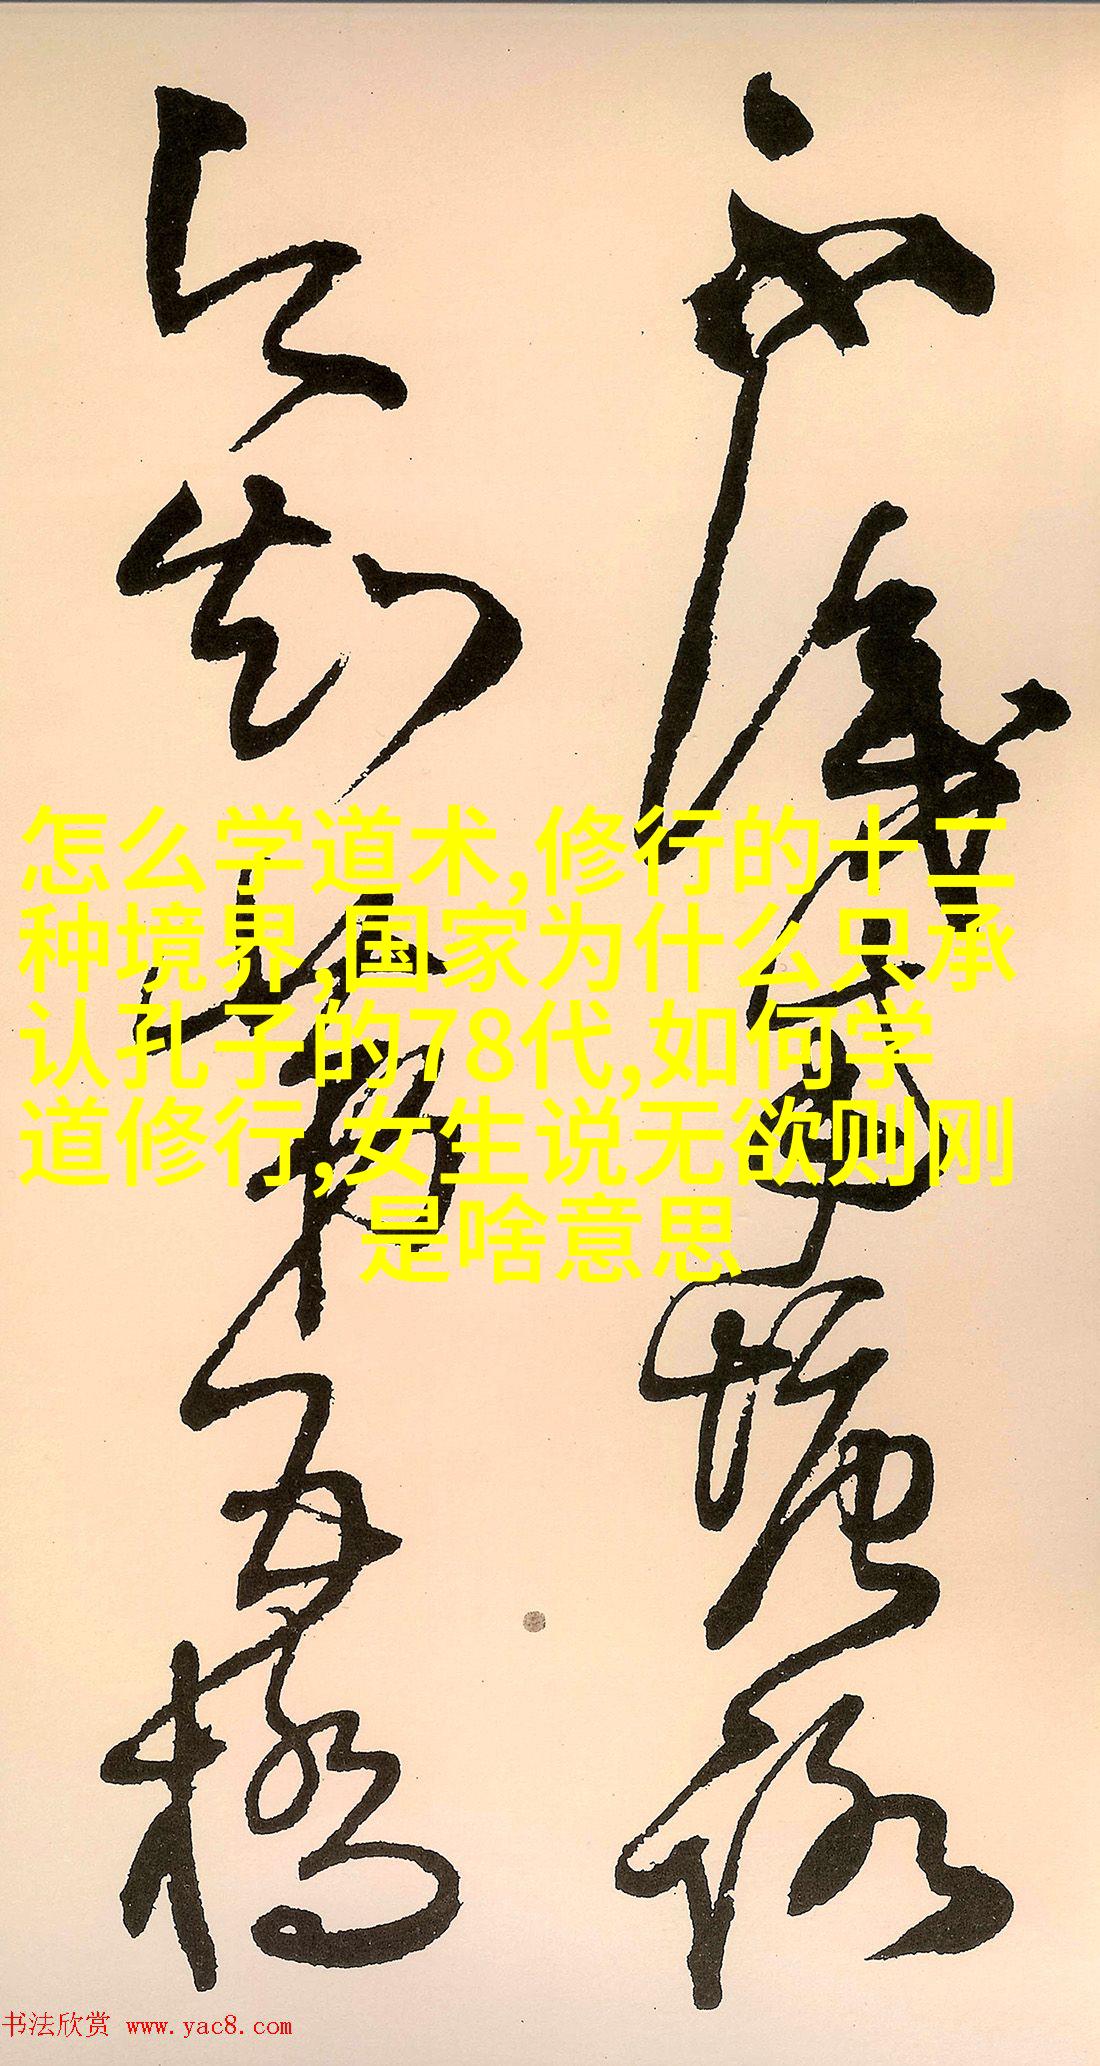 不识南塘路
今知第五桥
怎么学道术,修行的十二
种境界,国家为什么只承
认孔子的78代,如何学
道修行,女生说无欲则刚
是啥意思
书法欣赏 www.yac8.com